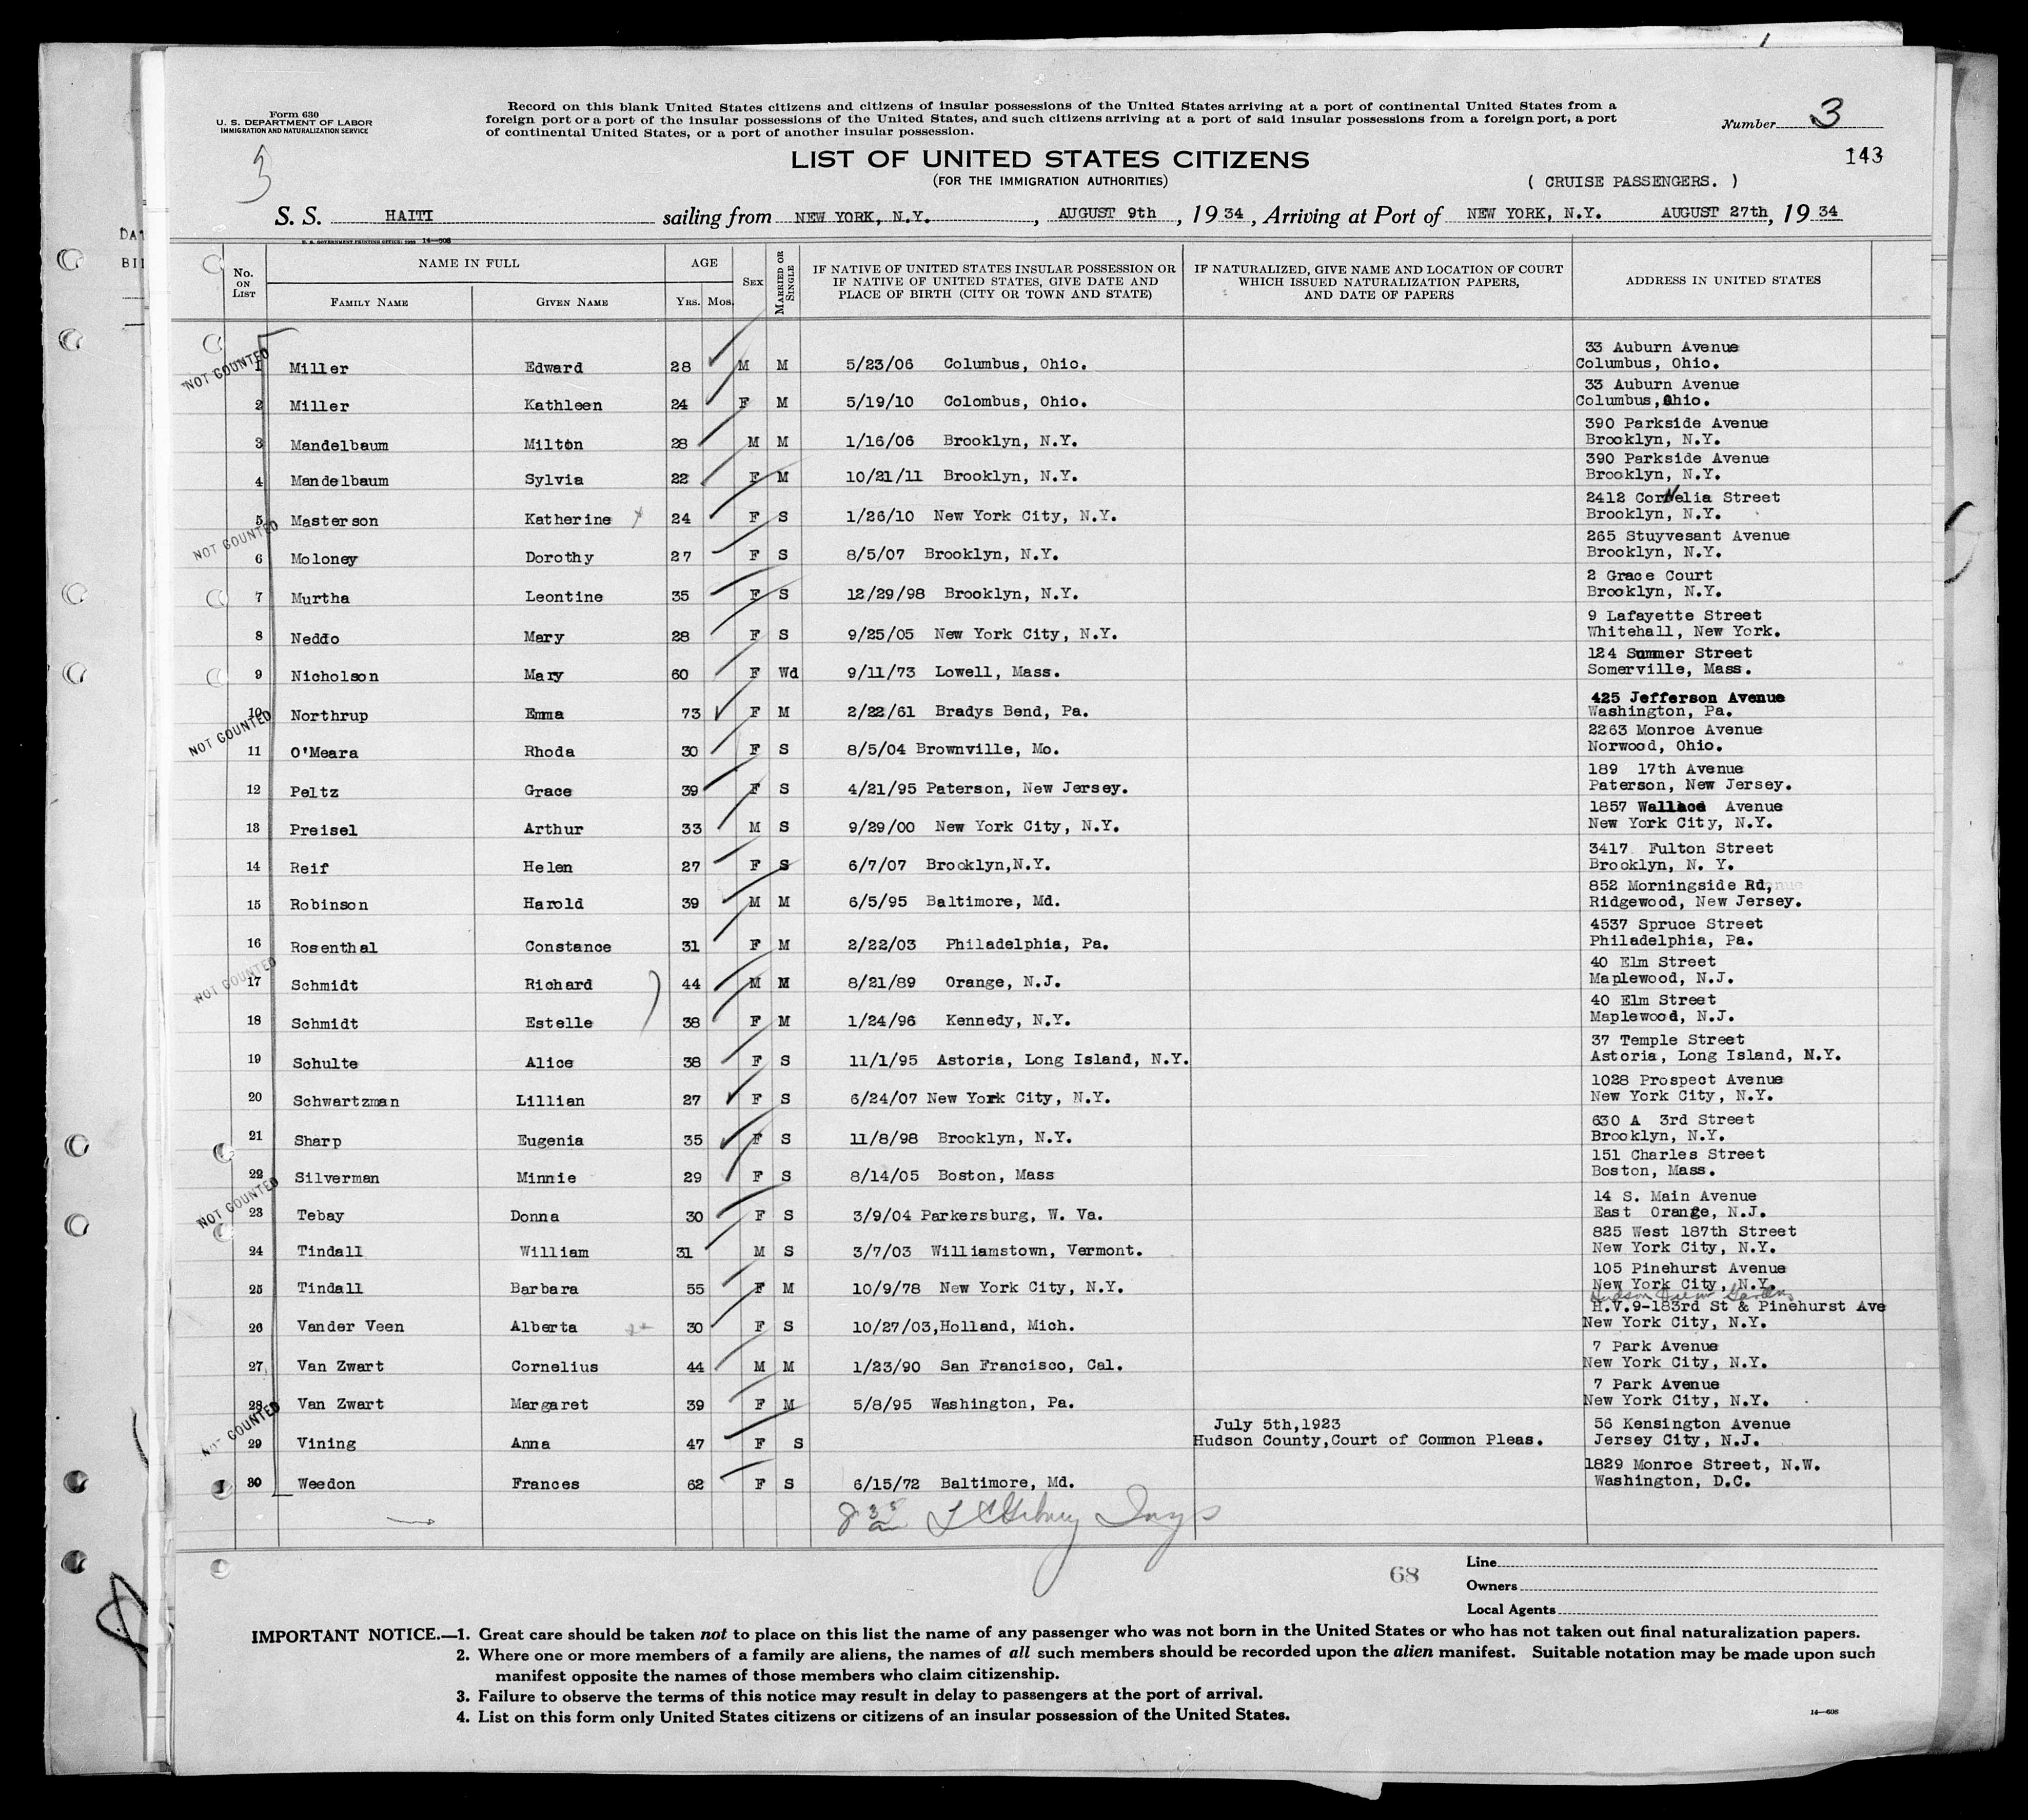 Form 630
U. S. DEPARTMENT OF LABOR
IMMIGRATION AND NATURALIZATION SERVICE
Record on this blank United States citizens and citizens of insular possessions of the United States arriving at a port of continental United States from a
foreign port or a port of the insular possessions of the United States, and such citizens arriving at a port of said insular possessions from a foreign port, a port
of continental United States, or a port of another insular possession.
Number 3
3
143
LIST OF UNITED STATES CITIZENS
(FOR THE IMMIGRATION AUTHORITIES)
( CRUISE PASSENGERS. )
S. S. HAITI sailing from NEW YORK, N.Y. , AUGUST 9th , 19 34 , Arriving at Port of NEW YORK, N.Y. AUGUST 27th , 19 34
U. S. GOVERNMENT PRINTING OFFICE: 14—608
No. ON LIST
NAME IN FULL
FAMILY NAME
GIVEN NAME
AGE
YRS. MOS.
SEX
MARRIED OR SINGLE
IF NATIVE OF UNITED STATES INSULAR POSSESSION OR
IF NATIVE OF UNITED STATES, GIVE DATE AND
PLACE OF BIRTH (CITY OR TOWN AND STATE)
IF NATURALIZED, GIVE NAME AND LOCATION OF COURT
WHICH ISSUED NATURALIZATION PAPERS,
AND DATE OF PAPERS
ADDRESS IN UNITED STATES
NOT COUNTED
33 Auburn Avenue
1 Miller Edward 28 M M 5/23/06 Columbus, Ohio. Columbus, Ohio.
33 Auburn Avenue
2 Miller Kathleen 24 F M 5/19/10 Colombus, Ohio. Columbus, Ohio.
390 Parkside Avenue
3 Mandelbaum Milton 28 M M 1/16/06 Brooklyn, N.Y. Brooklyn, N.Y.
390 Parkside Avenue
4 Mandelbaum Sylvia 22 F M 10/21/11 Brooklyn, N.Y. Brooklyn, N.Y.
2412 CorNelia Street
5 Masterson Katherine 24 F S 1/26/10 New York City, N.Y. Brooklyn, N.Y.
NOT COUNTED
265 Stuyvesant Avenue
6 Moloney Dorothy 27 F S 8/5/07 Brooklyn, N.Y. Brooklyn, N.Y.
2 Grace Court
7 Murtha Leontine 35 F S 12/29/98 Brooklyn, N.Y. Brooklyn, N.Y.
9 Lafayette Street
8 Neddo Mary 28 F S 9/25/05 New York City, N.Y. Whitehall, New York.
124 Summer Street
9 Nicholson Mary 60 F Wd 9/11/73 Lowell, Mass. Somerville, Mass.
425 Jefferson Avenue
10 Northrup Emma 73 F M 2/22/61 Bradys Bend, Pa. Washington, Pa.
NOT COUNTED
2263 Monroe Avenue
11 O'Meara Rhoda 30 F S 8/5/04 Brownville, Mo. Norwood, Ohio.
189 17th Avenue
12 Peltz Grace 39 F S 4/21/95 Paterson, New Jersey. Paterson, New Jersey.
1857 Wallace Avenue
13 Preisel Arthur 33 M S 9/29/00 New York City, N.Y. New York City, N.Y.
3417 Fulton Street
14 Reif Helen 27 F S 6/7/07 Brooklyn,N.Y. Brooklyn, N. Y.
852 Morningside Rd,
15 Robinson Harold 39 M M 6/5/95 Baltimore, Md. Ridgewood, New Jersey.
4537 Spruce Street
16 Rosenthal Constance 31 F M 2/22/03 Philadelphia, Pa. Philadelphia, Pa.
NOT COUNTED
40 Elm Street
17 Schmidt Richard 44 M M 8/21/89 Orange, N.J. Maplewood, N.J.
40 Elm Street
18 Schmidt Estelle 38 F M 1/24/96 Kennedy, N.Y. Maplewood, N.J.
37 Temple Street
19 Schulte Alice 38 F S 11/1/95 Astoria, Long Island, N.Y. Astoria, Long Island, N.Y.
1028 Prospect Avenue
20 Schwartzman Lillian 27 F S 6/24/07 New York City, N.Y. New York City, N.Y.
630 A 3rd Street
21 Sharp Eugenia 35 F S 11/8/98 Brooklyn, N.Y. Brooklyn, N.Y.
151 Charles Street
22 Silverman Minnie 29 F S 8/14/05 Boston, Mass Boston, Mass.
NOT COUNTED
14 S. Main Avenue
23 Tebay Donna 30 F S 3/9/04 Parkersburg, W. Va. East Orange, N.J.
825 West 187th Street
24 Tindall William 31 M S 3/7/03 Williamstown, Vermont. New York City, N.Y.
105 Pinehurst Avenue
25 Tindall Barbara 55 F M 10/9/78 New York City, N.Y. New York City, N.Y.
Hudson View Gardens
H.V.9-183rd St & Pinehurst Ave
26 Vander Veen Alberta 30 F S 10/27/03,Holland, Mich. New York City, N.Y.
7 Park Avenue
27 Van Zwart Cornelius 44 M M 1/23/90 San Francisco, Cal. New York City, N.Y.
7 Park Avenue
28 Van Zwart Margaret 39 F M 5/8/95 Washington, Pa. New York City, N.Y.
NOT COUNTED
July 5th,1923 56 Kensington Avenue
29 Vining Anna 47 F S Hudson County,Court of Common Pleas. Jersey City, N.J.
1829 Monroe Street, N.W.
30 Weedon Frances 62 F S 6/15/72 Baltimore, Md. Washington, D.C.
68
Line
Owners
Local Agents
IMPORTANT NOTICE.—1. Great care should be taken not to place on this list the name of any passenger who was not born in the United States or who has not taken out final naturalization papers.
2. Where one or more members of a family are aliens, the names of all such members should be recorded upon the alien manifest. Suitable notation may be made upon such
manifest opposite the names of those members who claim citizenship.
3. Failure to observe the terms of this notice may result in delay to passengers at the port of arrival.
4. List on this form only United States citizens or citizens of an insular possession of the United States.
14—608